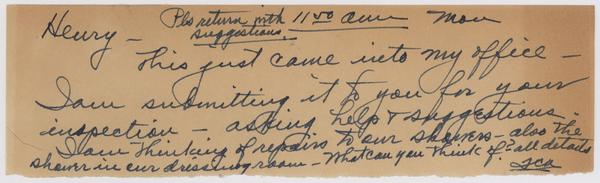 Henry – Pls return with 11:00 am Mon
suggestions. –
This just came into my office –
I am submitting it to you for your
inspection – asking help & suggestions.
I am thinking of repairs to our showers – also the
shower in our dressing room – What can you think of? all details